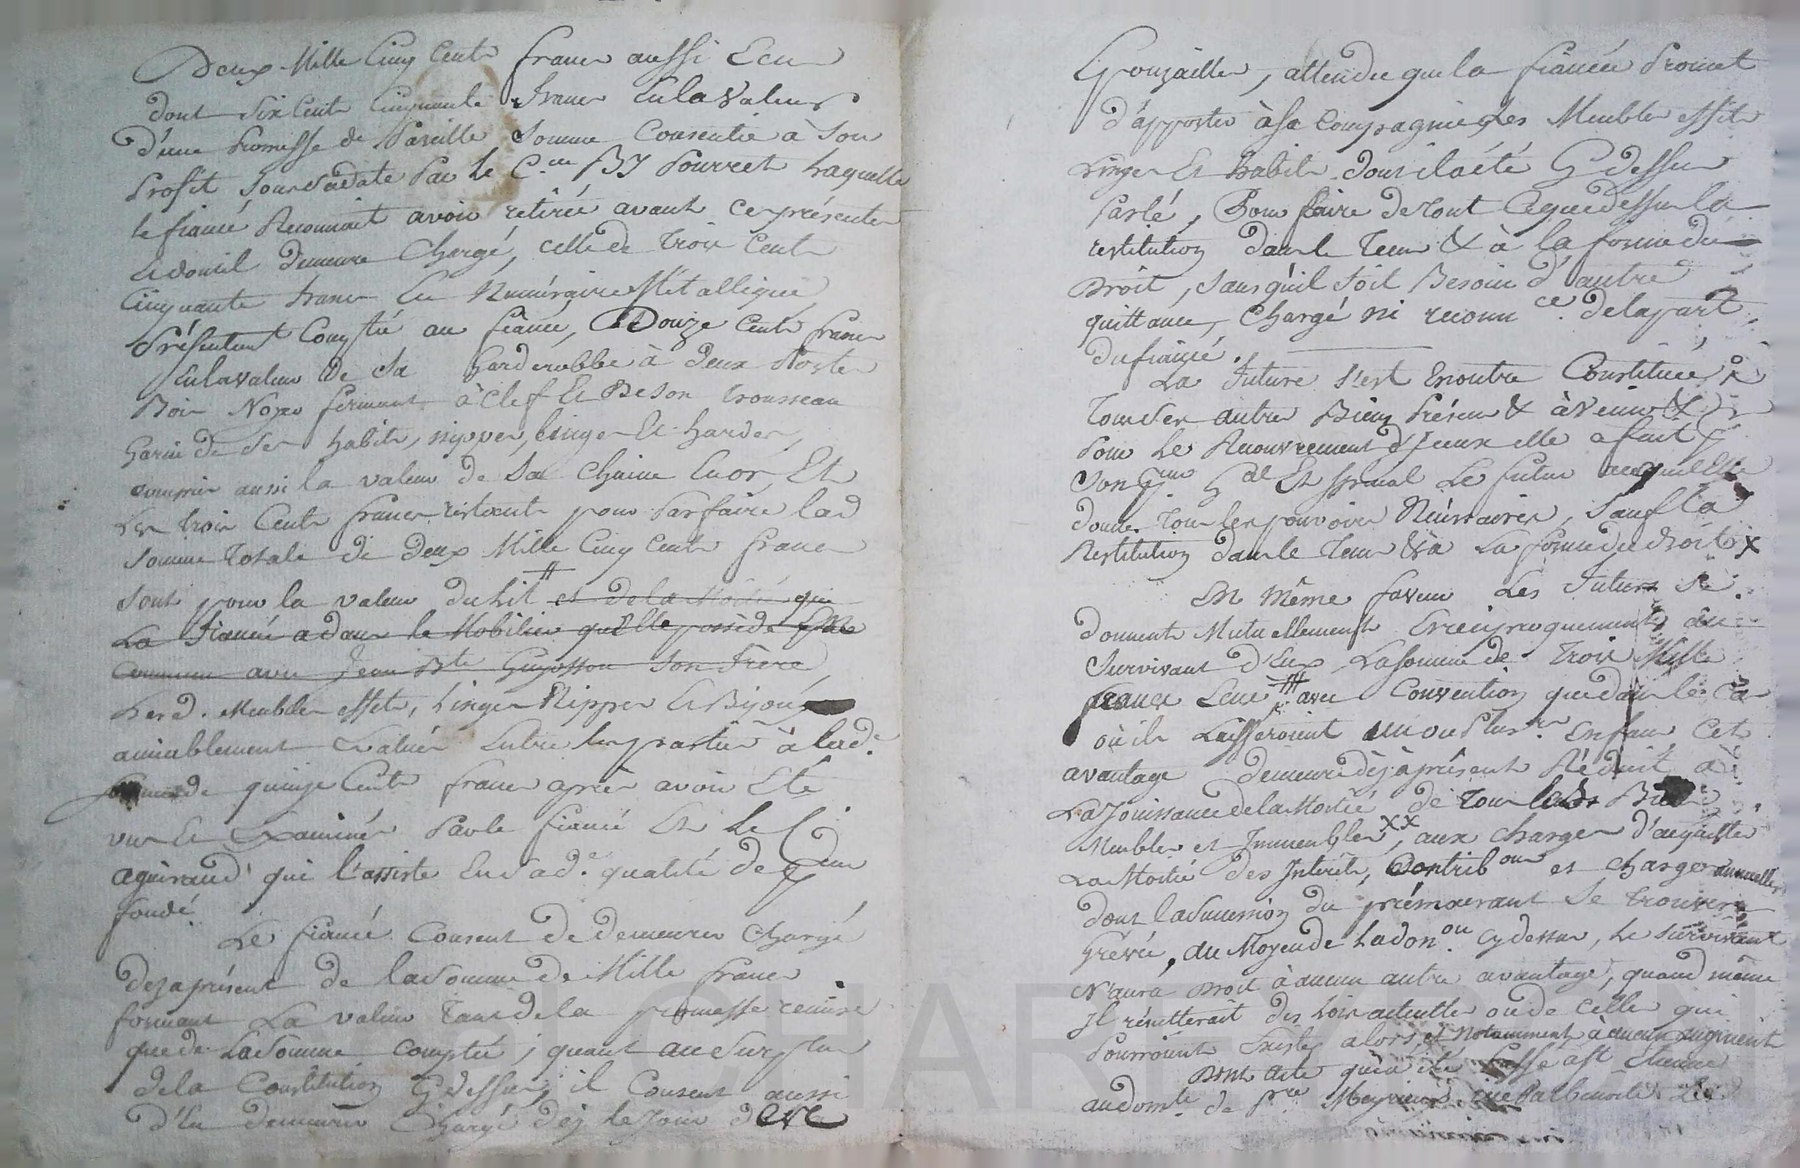 Deux Mille Cinq Cents francs aussi Ecus
dont Six Cents Cinquante francs En la Valeur
d'une Promesse de Pareille Somme Consentie à Son
Profit Sous Sa date Par le C.en Pourret Laquelle
le fiancé Reconnait avoir retirée avant ces présentes
Et dont il demeure Chargé, celle de Trois Cents
Cinquante francs En Numéraire Métallique
Présentemt Comptée au fiancé, Douze Cents francs
En la valeur de Sa Garderobbe à deux Portes
Bois Noyer fermant à Clef Et De Son Trousseau
Garnie de Ses habits, nippes, linges Et hardes,
compris aussi la valeur de Sa Chaine En or, Et
Les trois Cents francs restants pour Parfaire lad
Somme Totale de Deux Mille Cinq Cents francs
Sont pour la valeur du Lit # et de la Moitié que
La fiancée a dans le Mobilier qu'Elle possède
Commun avec Jean Bte Son Frère
Lesd. Meubles effets, Linges Nippes Et Bijoux
amiablement Evalués Entre les parties à lad.e
Somme de quinze Cents francs après avoir Eté
vus Et Examinés Par le fiancé Et le C.en
Aguiraud qui l'assiste En Sad.e qualité de
fondé.
Le fiancé Consent de demeurer Chargé
dez à présent de la Somme de Mille francs
formant La valeur Tant de la promesse remise
que de La Somme Comptée, quant au Surplus
de la Constitution Cy dessus, il Consent aussi
d'En demeurer Chargé dez le Jour des
Epouzailles, attendu que la fiancée Promet
d'apporter à Sa Compagnie les Meubles effets
Linges Et habits dont il a été Cy dessus
Parlé, Pour faire de Tout Ce que dessus la
restitution dans le Tems & à la forme du
Droit, Sans qu'il Soit Besoin d'autre
quittance, Chargé ni reconn.ce de la part
du fiancé.
La Future S'est En outre Constituée
Tous Ses autres Biens Présens & à Venir &
Pour Le Recouvrement d'Iceux elle a fait
Son Gal Et Spécial Le futur auquel Elle
donne Tous les pouvoirs Nécessaires, Sauf La
Restitution dans le Tems & à La forme du droit X
En même faveur Les Futurs Se
donnent Mutuellement Et réciproquement au
Survivant d'Eux La Somme de Trois Mille
francs Ecus avec Convention que dans le Cas
où ils Laisseroient un ou Plusrs Enfans Cet
avantage demeure dèjà présent Réduit à
La Jouissance de la Moitié de Tous Biens
Meubles et Immeubles XX, aux Charges d'acquitter
La Moitié des Interêts, Contribons et Charges annuelles
dont la Succession du prémourant Se Trouvera
Grévée, au Moyen de La don.on Cy dessus, Le Survivant
N'aura Droit à aucun autre avantage, quand même
Il résulterait des Loix actuelles ou de Celles qui
Pourroient Exister alors et Notamment à aucun augment
Dont acte
au dom.le de Pre Meyrieux